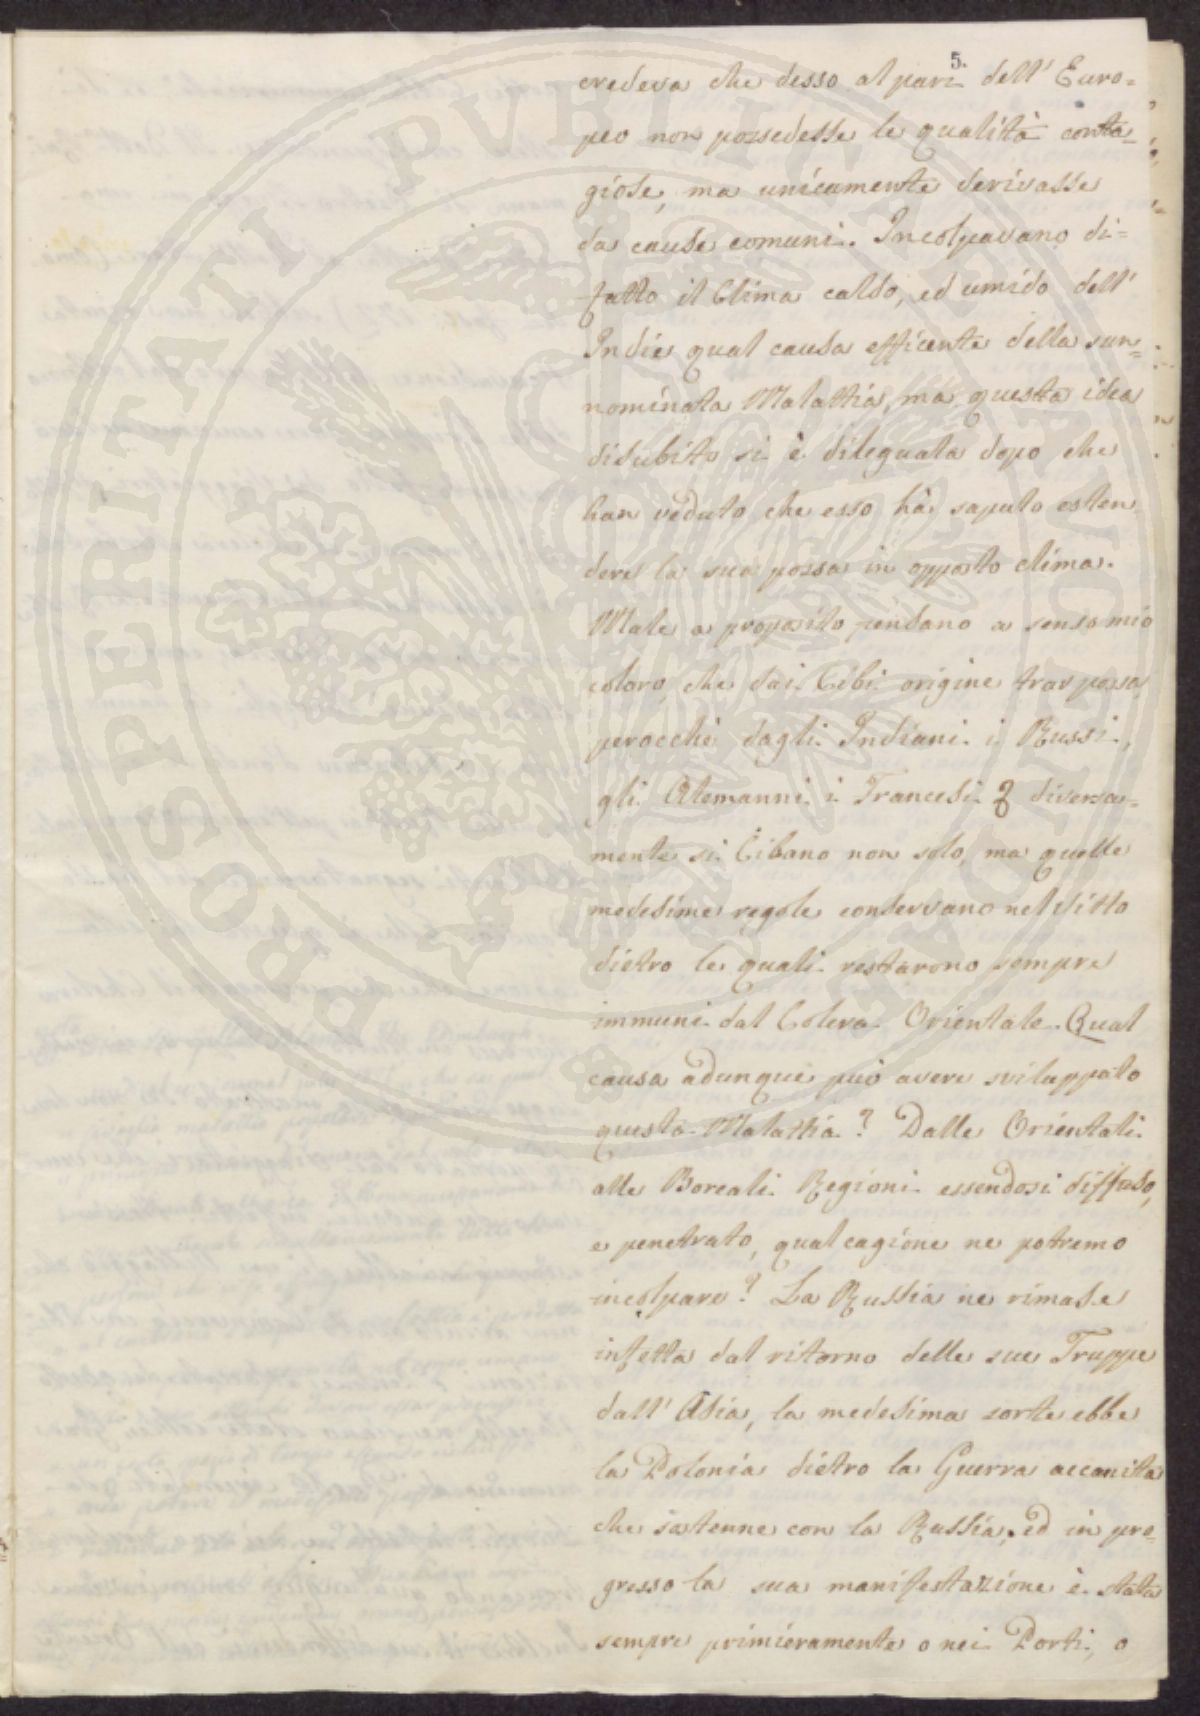 5.
credeva che desso al pari dell' Euro=
peo non possedesse le qualità conta=
giose, ma unicamente derivasse
da cause comuni. Incolpavano di=
fatto il Clima caldo, ed umido dell'
Indie qual causa efficente della sun=
nominata Malattia, ma questa idea
disubito si è dileguata dopo che
han veduto che esso hà saputo esten
dere la sua possa in opposto clima.
Male a proposito pensano a senso mio
coloro, che dai Cibi origine trar possa,
perocchè dagli Indiani i Russi,
gli Alemanni i Francesi diversa=
mente si Cibano non solo, ma quelle
medesime regole conservano nel Vitto
dietro le quali restarono sempre
immuni dal Colera Orientale. Qual
causa adunque può avere sviluppato
questa Malattia? Dalle Orientali
alle Boreali Regioni essendosi diffuso,
e penetrato, qual cagione ne potremo
incolpare? La Russia ne rimase
infetta dal ritorno delle sue Truppe
dall' Asia, la medesima sorte ebbe
la Polonia dietro la Guerra accanita
che sostenne con la Russia, ed in pro=
gresso la sua manifestazione è stata
sempre primieramente o nei Porti, o
PROSPERITATI PVBLICAE AVGENDAE